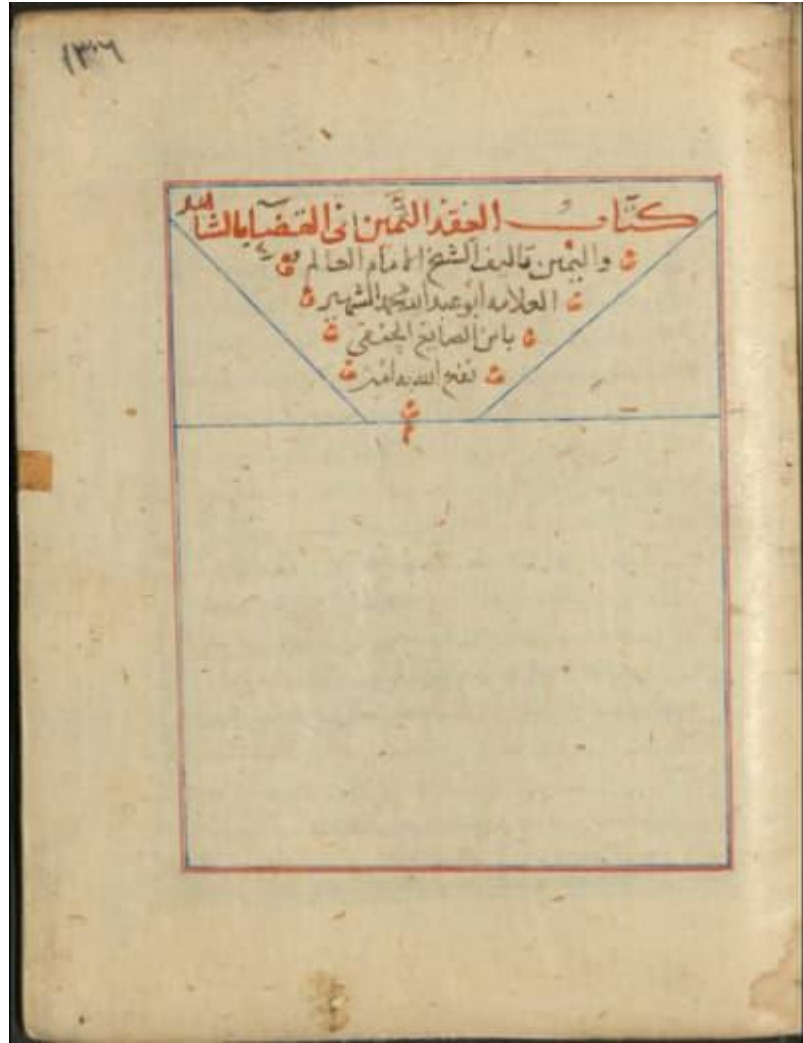 ١٣٠٦
كتاب العقد الثمين في القضا بالشاهد
واليمين تاليف الشيخ الامام العالم
العلامه أبو عبد الله محمد الشهير
بابن الصايغ الحنفي
نفع الله به امين